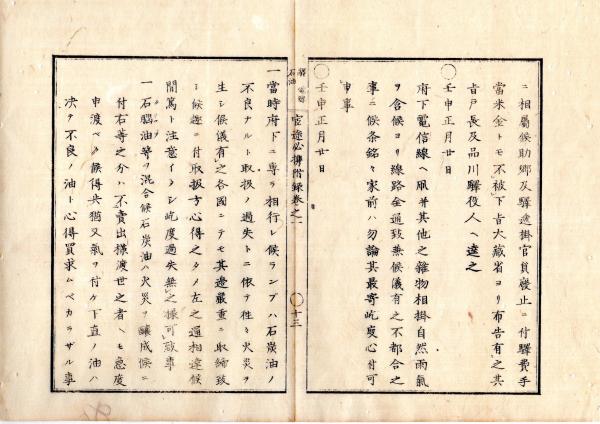 ニ相屬候助郷及驛遞掛官員廢止ニ付驛費手
當米金トモ不被下旨大藏省ヨリ布告有之其
旨戸長及品川驛役人ヘ達之
〇壬申正月廿日
府下電信線ヘ凧并其他之雜物相掛自然雨氣
ヲ含候ヨリ線路全通致兼候儀有之不都合之
事ニ候条銘々家前ハ勿論其最寄屹度心付可
申事
〇壬申正月廿日
官途必携附録卷之一
十三
一當時府下ニ専ラ相行レ候ランプハ石炭油ノ
不良ナルト取扱ノ過失トニ依テ徃々火災ヲ
生シ候儀有之各國ニテモ其邊嚴重ニ取締致
シ候趣ニ付取扱方心得之タメ左之通相達候
間篤ト注意イタシ屹度過失無之樣可致事
一石腦油等ヲ混合候石炭油ハ火災ヲ釀成候ニ
付右等之分ハ不賣出樣渡世之者ヘモ急度
申渡ベク候得共猶又氣ヲ付ケ下直ノ油ハ
決テ不良ノ油ト心得買求ムベカラザル事